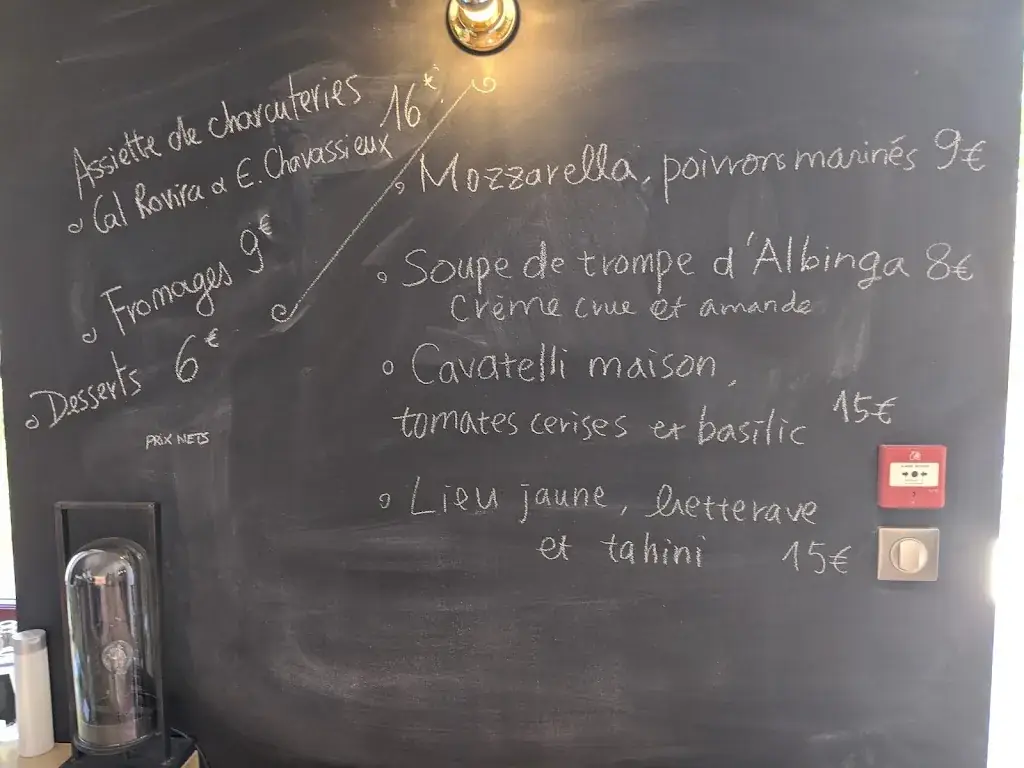 Assiette de charcuteries
Cal Rovira & E. Chavassieux 16€
Fromages 9€
Desserts 6€
PRIX NETS
Mozzarella, poivrons marinés 9€
Soupe de trompe d'Albinga 8€
Crème crue et amande
Cavatelli maison,
tomates cerises et basilic 15€
Lieu jaune, betterave
et tahini 15€